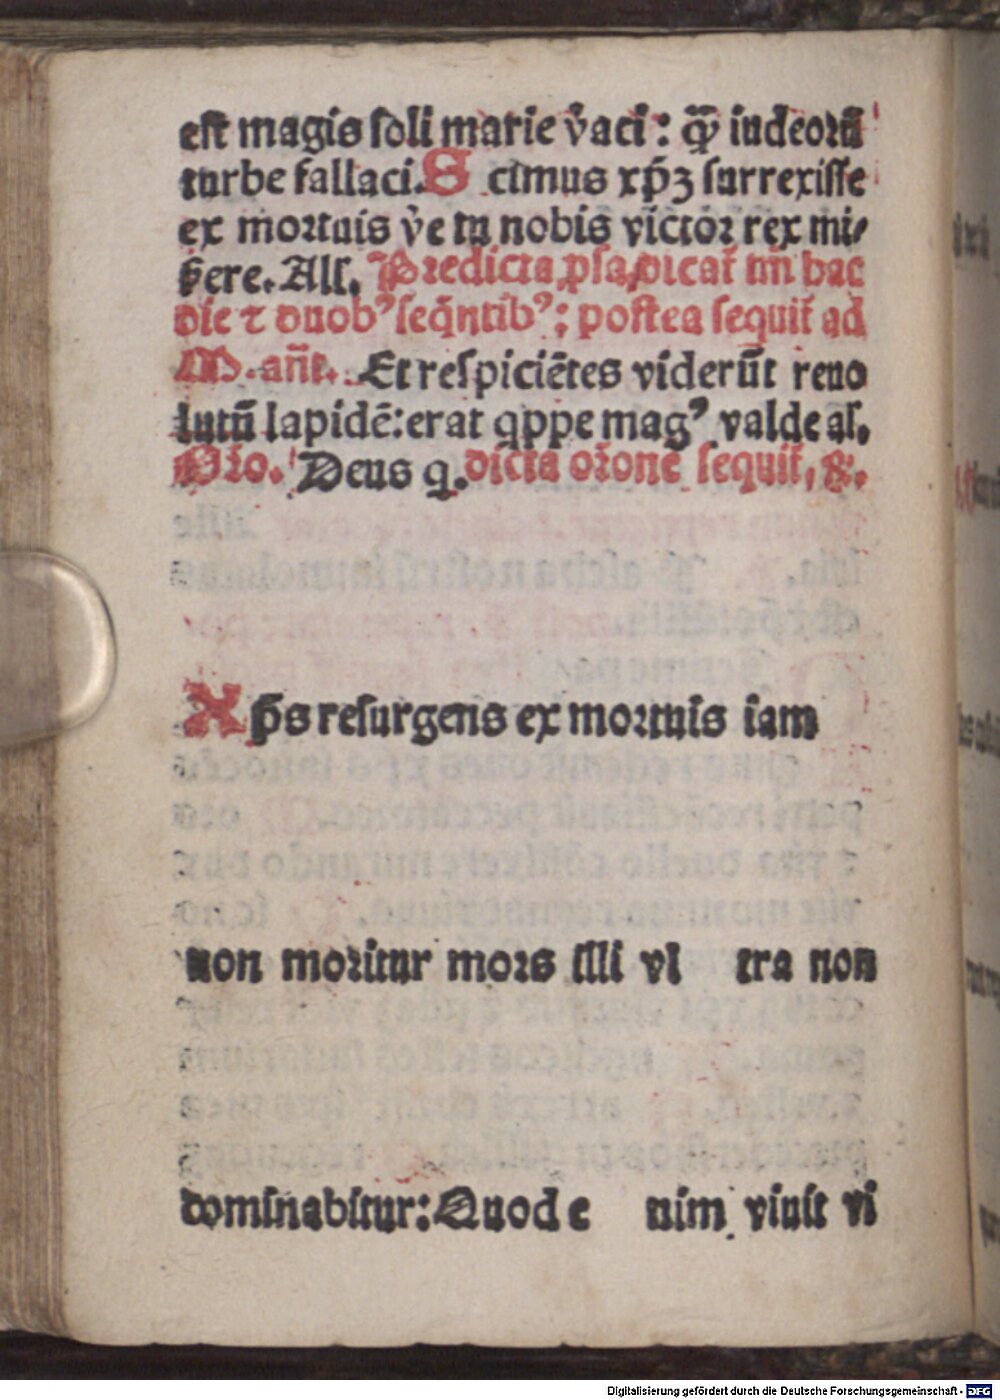 est magis soli marie v̄aci: q̄ꝫ iudeorū
turbe fallaci. S cimus xp̄ꝫ surrexisse
ex mortuis v̄e tu nobis victor rex mi⸗
s̄ere. All. Predicta ꝓsa dicat̄ tm̄ hac
die ⁊ duobꝰ seq̄ntibꝰ: postea sequit̄ ad
M. añt. Et respiciētes viderūt reuo
lutū lapidē: erat qppe magꝰ valde al.
Oro. Deus q. dicta orone sequit̄, &.
X p̄s resurgens ex mortuis iam
non moritur mors illi vl tra non
dominabitur: Quod e nim viuit vi
Digitalisierung gefördert durch die Deutsche Forschungsgemeinschaft - DFG